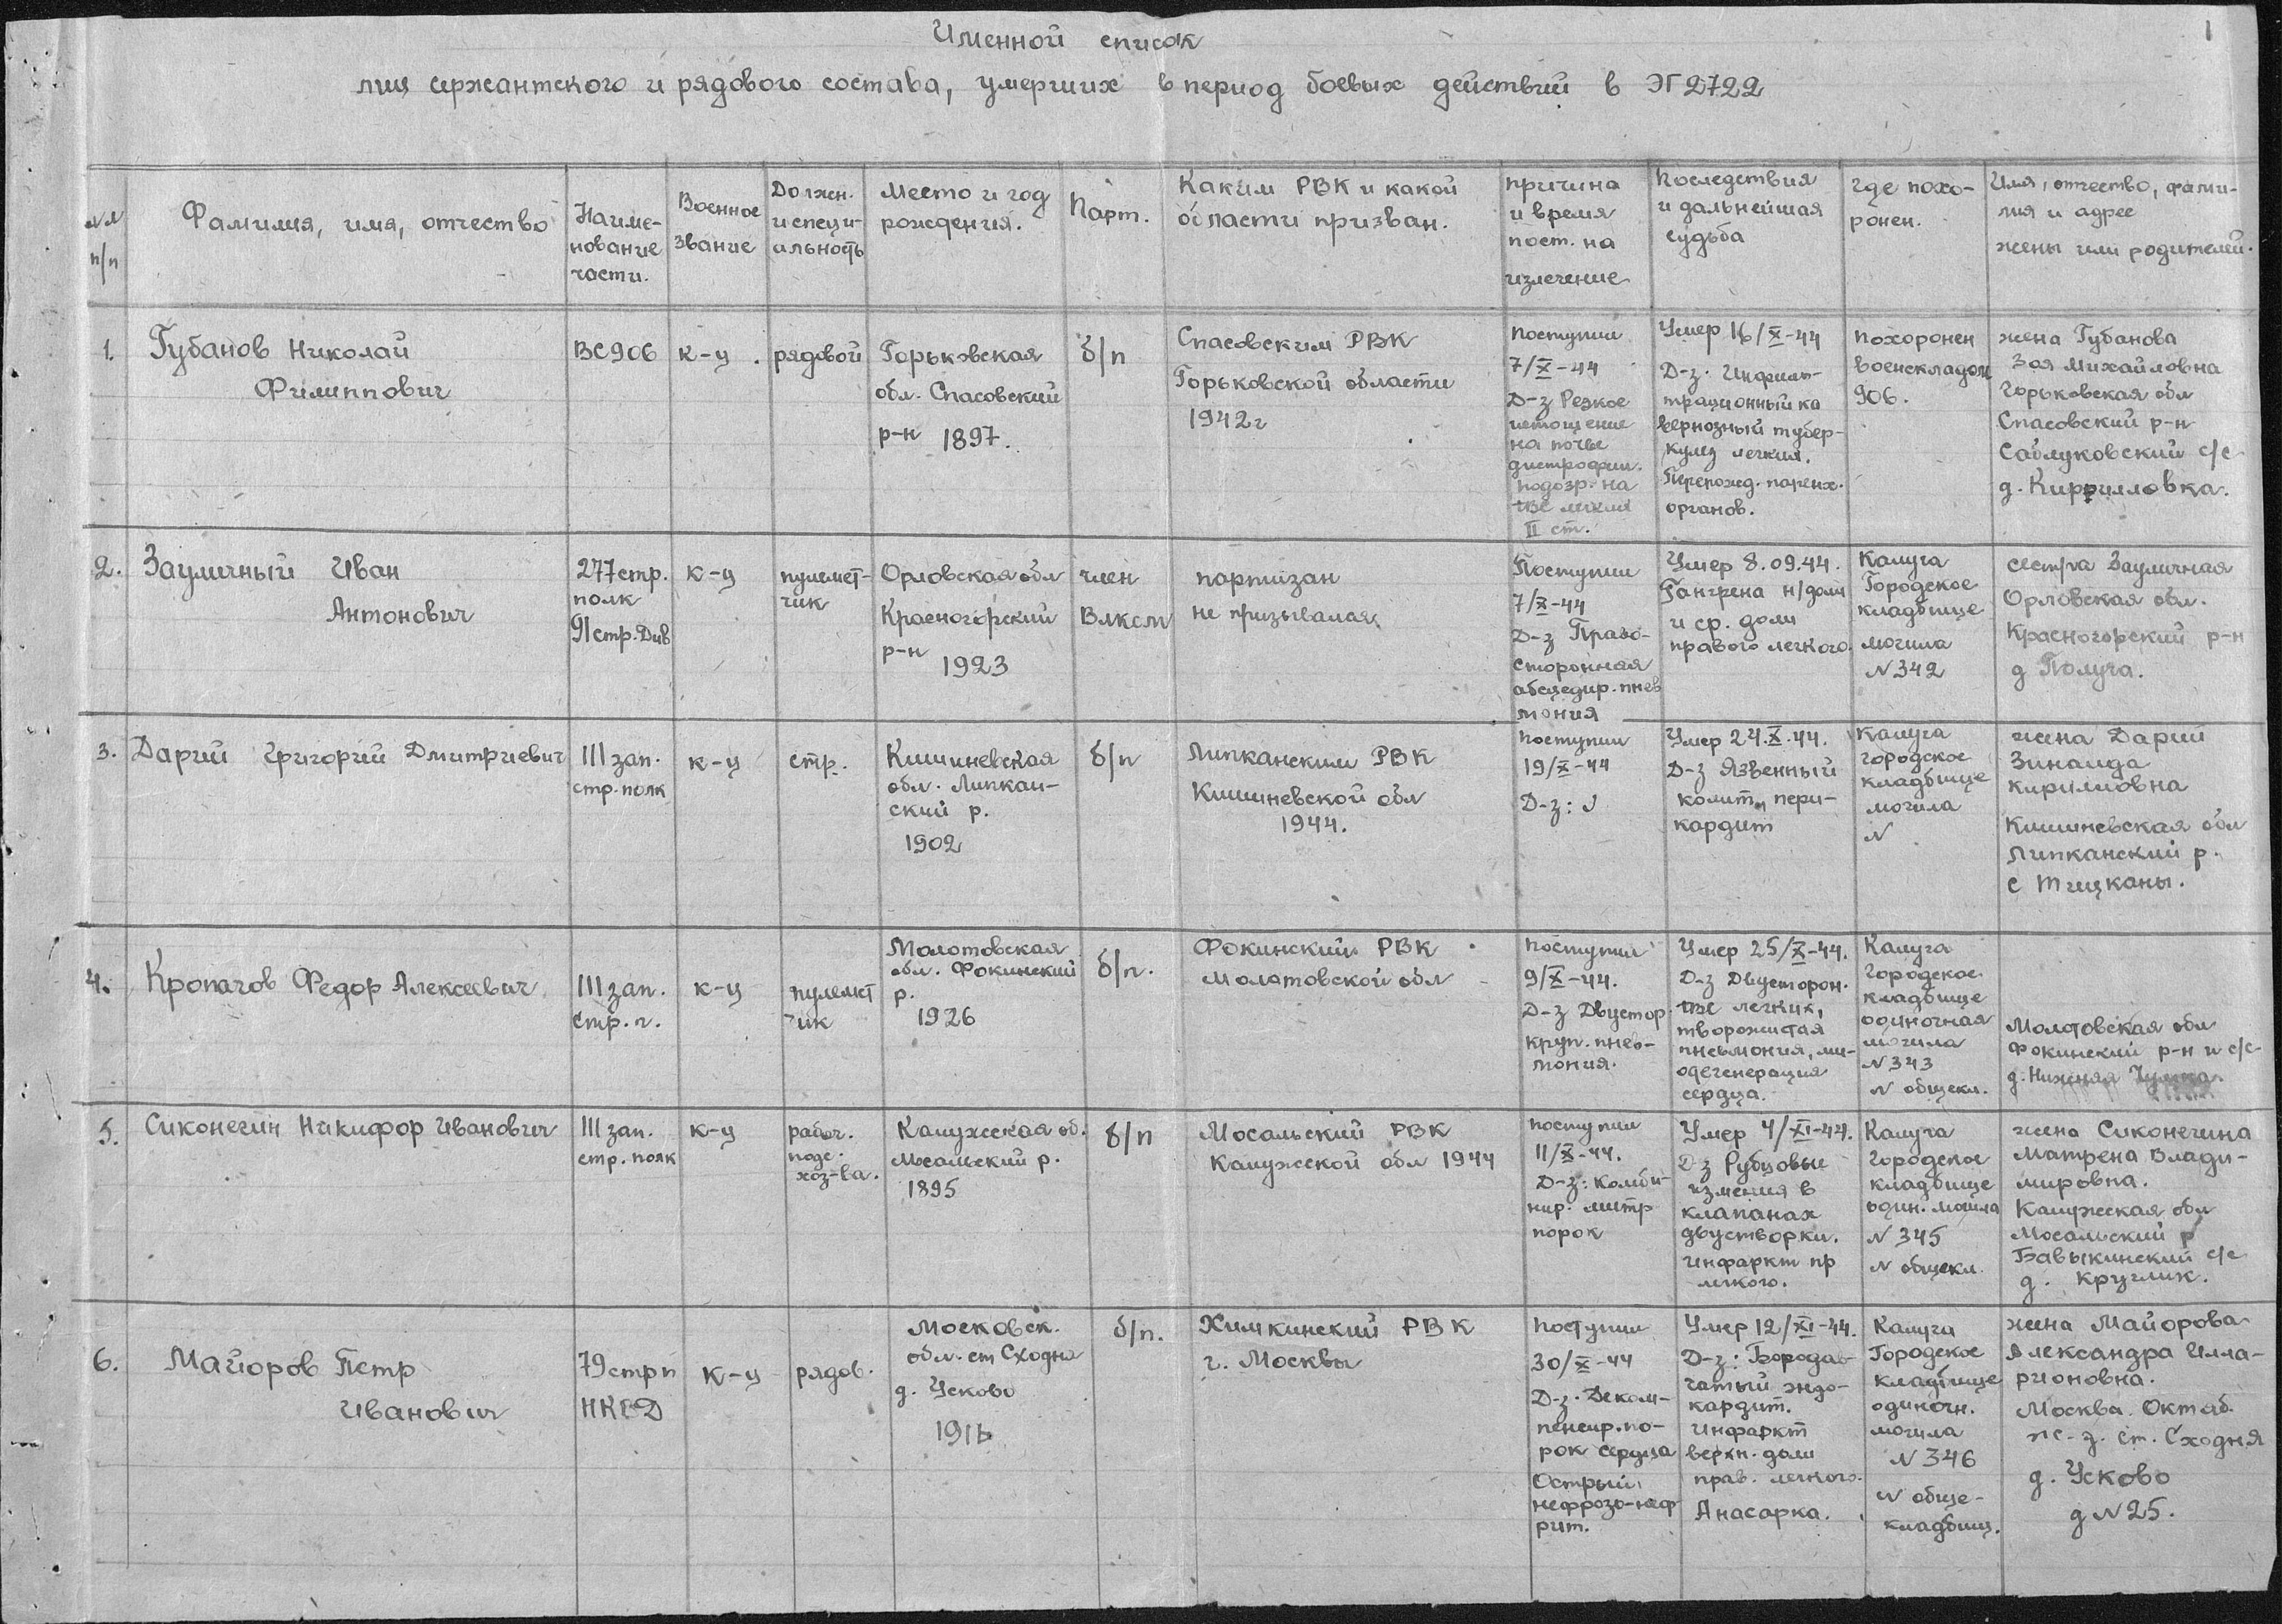 1
Именной список
лиц сержантского и рядового состава, умерших в период боевых действий в ЭГ 2722
№№
п/п
Фамилия, имя, отчество
Наиме-
нование
части.
Военное
звание
Должн.
и специ-
альность
Место и год
рождения.
Парт.
Каким РВК и какой
области призван.
Причина
и время
пост. на
излечение
Последствия
и дальнейшая
судьба
Где похо-
ронен.
Имя, отчество, фами-
лия и адрес
жены или родителей.
1.
Губанов Николай
Филиппович
ВС906
к-ц
рядовой
Горьковская
обл. Спасовский
р-н 1897.
б/п
Спасовским РВК
Горьковской области
1942г
Поступил
7/X-44
Д-з Резкое
истощение
на почве
дистрофии.
подозр. на
твс легких
II ст.
Умер 16/X-44
Д-з. Инфиль-
трационный ка
вернозный тубер-
кулез легких.
Перерожд. паренх.
органов.
Похоронен
военскладом
906.
жена Губанова
Зоя Михайловна
Горьковская обл
Спасовский р-н
Саблуковский с/с
д. Кирриловка.
2.
Зауличный Иван
Антонович
277 стр.
полк
91 стр. Див
к-ц
пулемет-
чик
Орловская обл
Красногорский
р-н
1923
член
Влксм
партизан
не призывался
Поступил
7/X-44
Д-з Право-
сторонняя
абсцедир. пнев
мония
Умер 8.09.44.
Гангрена н/доли
и ср. доли
правого легкого.
Калуга
Городское
кладбище
могила
N 342
сестра Зауличная
Орловская обл.
Красногорский р-н
д Полуга.
3.
Дарий Григорий Дмитриевич
111 зап.
стр. полк
к-ц
стр.
Кишиневская
обл. Липкан-
ский р.
1902
б/п
Липканским РВК
Кишиневской обл
1944.
Поступил
19/X-44
Д-з:
Умер 24.X.44.
Д-з Язвенный
колит, пери-
кардит
Калуга
городское
кладбище
могила
N
жена Дарий
Зинаида
Кирилловна
Кишиневская обл
Липканский р.
с Тицканы.
4.
Кропачов Федор Алексеевич
111 зап.
стр. п.
к-ц
пулемет
чик
Молотовская
обл. Фокинский
р.
1926
б/п.
Фокинский РВК
Молотовской обл
Поступил
9/X-44.
Д-з Двустор.
круп. пнев-
мония.
Умер 25/X-44.
Д-з Двусторон.
твс легких,
творожистая
пневмония, ми-
одегенерация
сердца.
Калуга
городское
кладбище
одиночная
могила
N 343
N общекл.
Молотовская обл
Фокинский р-н и с/с
д. Нижняя
5.
Сиконегин Никифор Иванович
111 зап.
стр. полк
к-ц
рабоч.
подс.
хоз-ва.
Калужская об.
Мосальский р.
1895
б/п
Мосальский РВК
Калужской обл 1944
поступил
11/X-44.
Д-з: Комби-
нир. митр
порок
Умер 4/XI-44.
Д-з Рубцовые
измения в
клапанах
двустворки.
Инфаркт пр
легкого.
Калуга
городское
кладбище
один. могила
N 345
N общекл.
жена Сиконечина
Матрена Влади-
мировна.
Калужская обл
Мосальский р
Бавыкинский с/с
д. Круглик.
6.
Майоров Петр
Иванович
79 стр п
НКВД
к-ц
рядов.
Московск.
обл. ст Сходня
д. Усково
1916
б/п.
Химкинский РВК
г. Москвы
Поступил
30/X-44
Д-з. Деком-
пенсир. по-
рок сердца
Острый
нефрозо-неф
рит.
Умер 12/XI-44.
Д-з: Бородав-
чатый эндо-
кардит.
Инфаркт
верхн. доли
прав. легкого.
Анасарка.
Калуга
Городское
кладбище
одиночн.
могила
N 346
N обще-
кладбищ.
жена Майорова
Александра Илла-
рионовна.
Москва. Октяб.
ж-д. ст. Сходня
д. Усково
д N 25.